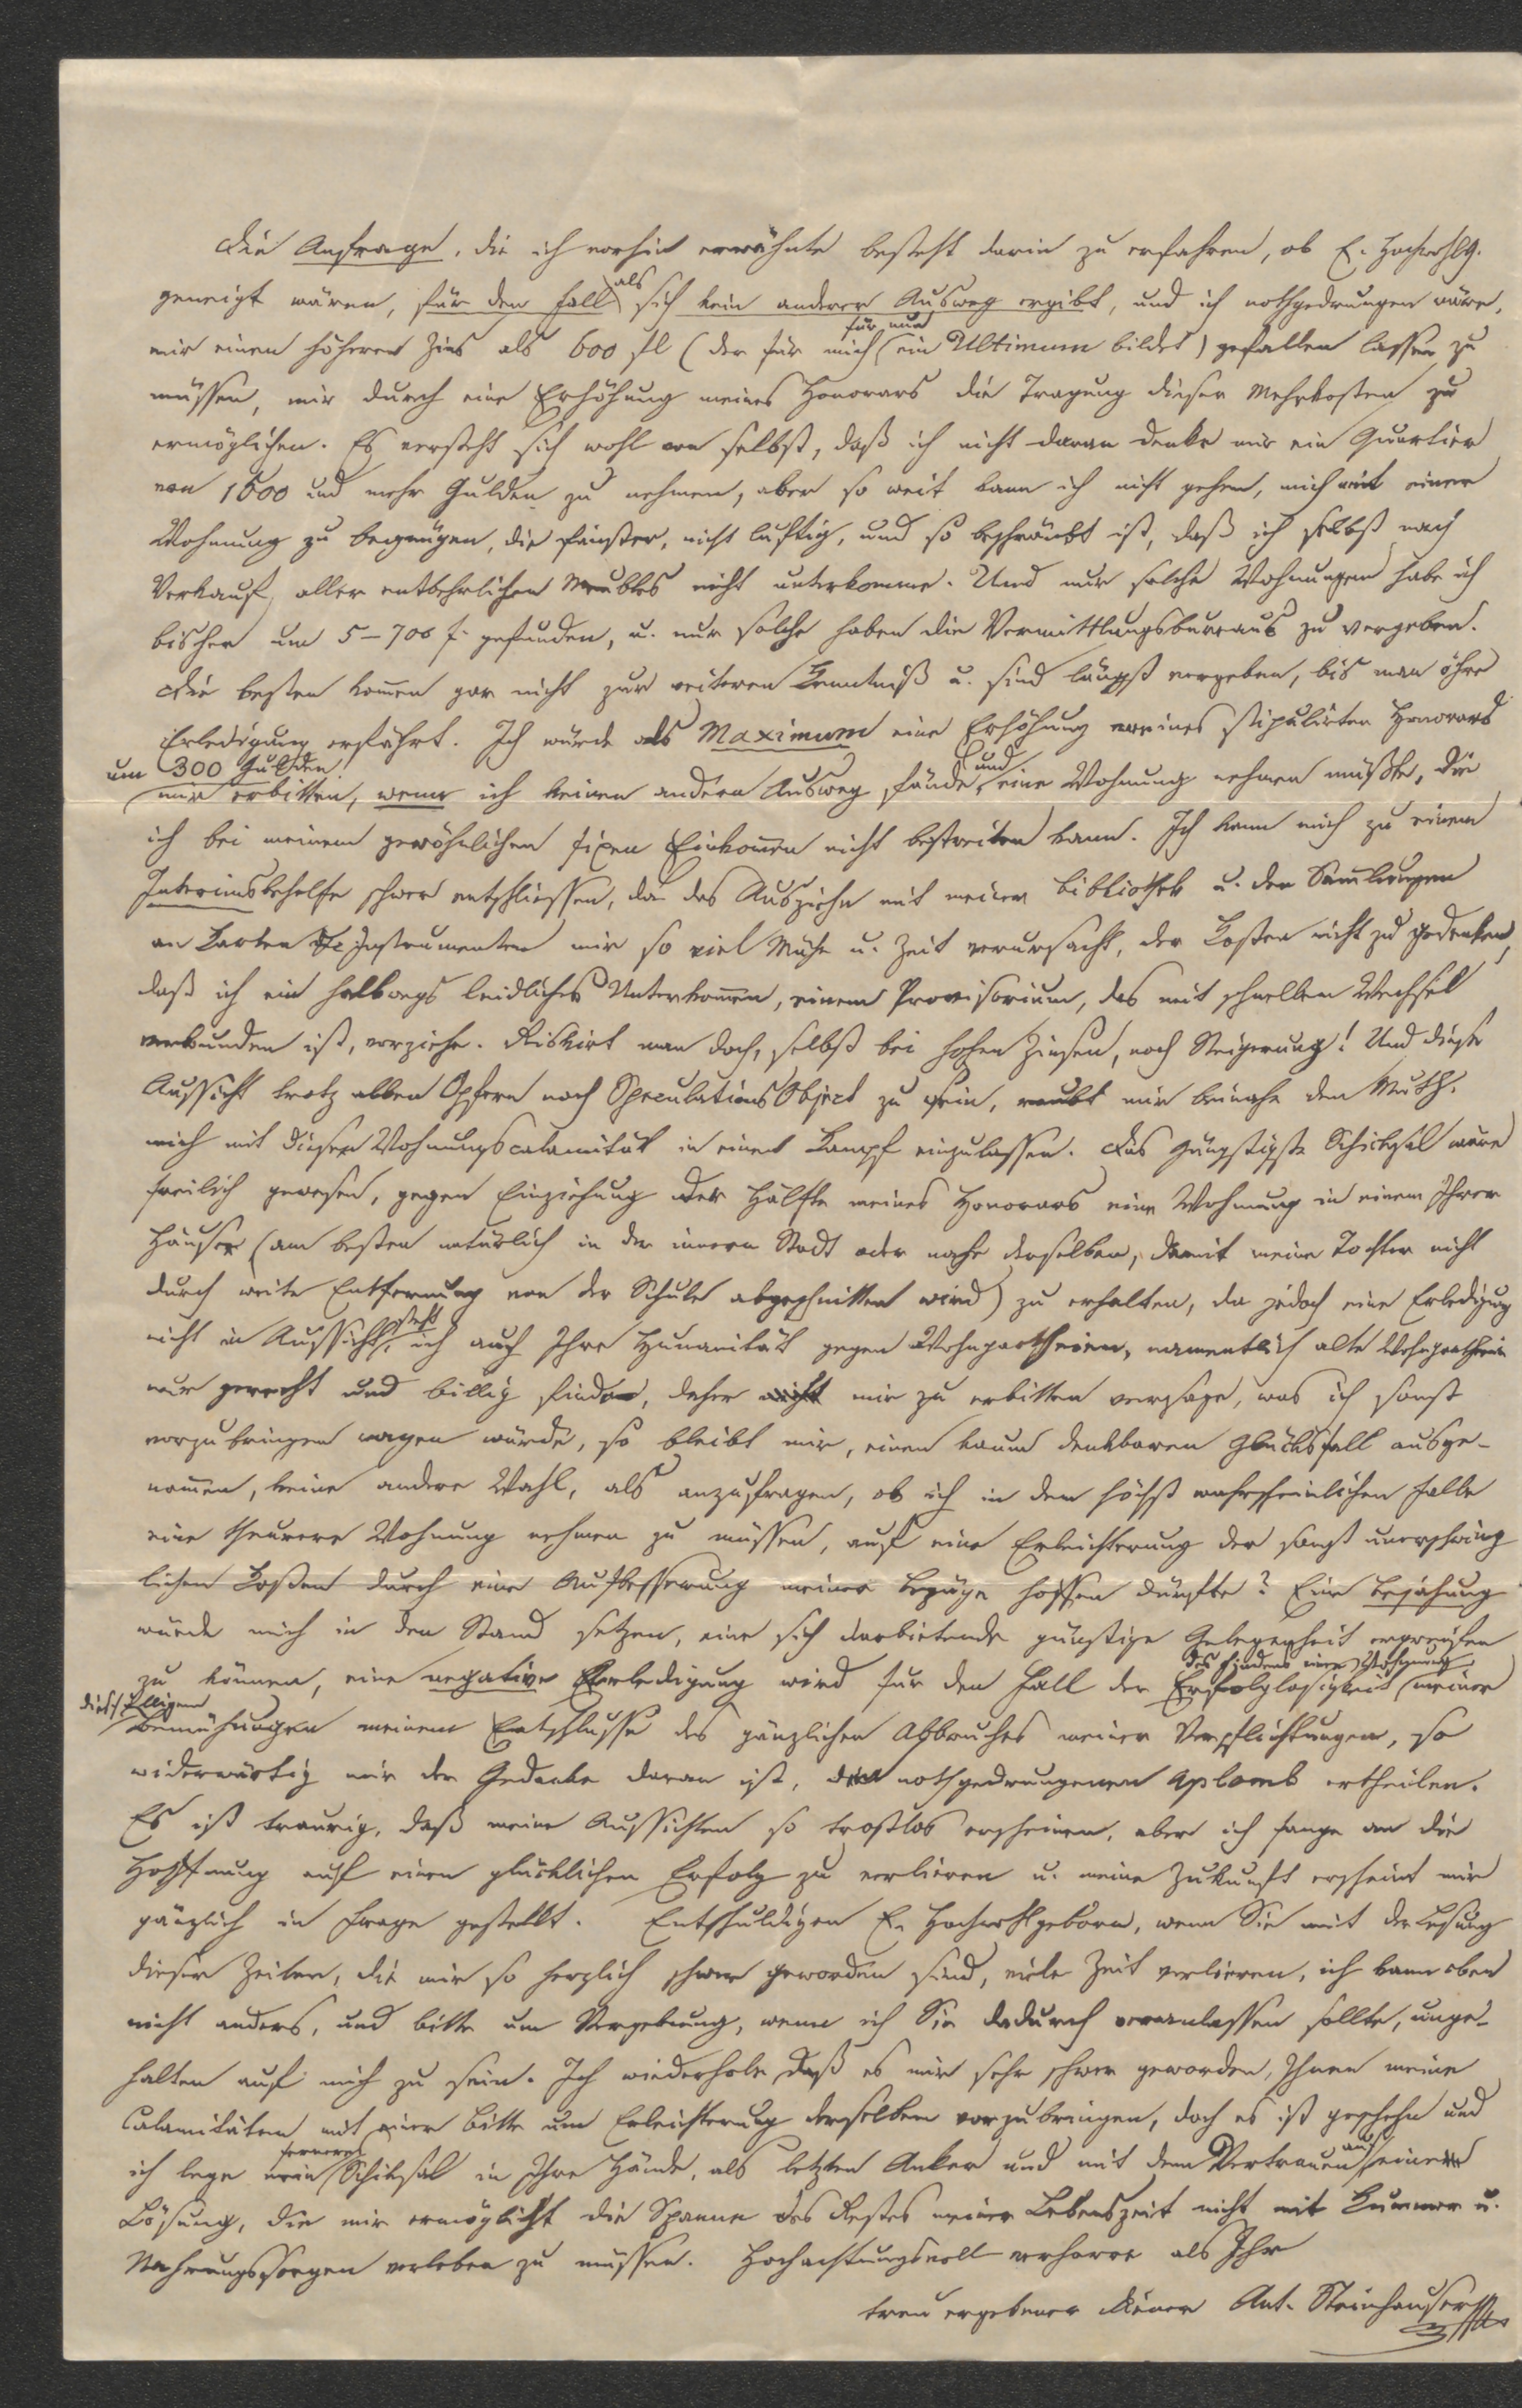 Die Anfrage, die ich vorhin erwähnte besteht darin zu erfahren, ob E. Hochwohlg.
geneigt wären, für den Fall als sich kein anderer Ausweg ergibt, und ich nothgedrungen wäre,
mir einen höheren Zins als 600 fl (der für mich für nun ein Ultimum bildet) gefallen lassen zu
müssen, mir durch eine Erhöhung meines Honorars die Tragung dieser Mehrkosten zu
ermöglichen. Es versteht sich wohl von selbst, daß ich nicht daran denke mir ein Quartier
von 1500 und mehr Gulden zu nehmen, aber so weit kann ich nicht gehen, mich mit einer
Wohnung zu begnügen, die finster, nicht luftig, und so beschränkt ist, daß ich selbst nach
Verkauf aller entbehrlichen Meubles nicht unterkomme. Und nur solche Wohnungen habe ich
bisher um 5–700 f. gefunden, u. nur solche haben die Vermittlungsbureaus zu vergeben.
Die besten komen gar nicht zur weiteren Kenntniß u. sind längst vergeben, bis man ihre
Erledigung erfährt. Ich würde als Maximum eine Erhöhung meines stipulirten Honorars
um 300 Gulden mir erbitten, wenn ich keinen andern Ausweg fände, und eine Wohnung nehmen müßte, die
ich bei meinem gewöhnlichen fixen Einkomen nicht bestreiten kann. Ich kann mich zu einem
Interimsbehelfe schwer entschliessen, da das Ausziehn mit meiner Bibliothek u. den Samlungen
an Karten Instrumenten mir so viel Mühe u. Zeit verursacht, der Kosten nicht zu gedenken,
daß ich ein halbwegs leidliches Unterkomen, einem Provisorium, das mit schnellem Wechsel
verbunden ist, vorziehe. Riskirt man doch, selbst bei hohen Zinsen, noch Steigerung! Und diese
Aussicht trotz allen Opfern noch Speculations Object zu sein, raubt mir beinahe den Muth,
mich mit dieser Wohnungscalamität in einen Kampf einzulassen. Das günstigste Schicksal wäre
freilich gewesen, gegen Einziehung der Hälfte meines Honorars eine Wohnung in einem Ihrer
Häuser (am besten natürlich in der innern Stadt oder nahe derselben, damit meine Tochter nicht
durch weite Entfernung von der Schule abgeschnitten wird) zu erhalten, da jedoch eine Erledigung
nicht in Aussicht steht, ich auch Ihre Humanität gegen Wohnpartheien, namentlich alte Wohnpartheien
nur gerecht und billig finde, daher mir zu erbitten versage, was ich sonst
vorzubringen wagen würde, so bleibt mir, einen kaum denkbaren Glücksfall ausge-
nomen, keine andere Wahl, als anzufragen, ob ich in dem höchst wahrscheinlichen Falle
eine theurere Wohnung nehmen zu müssen, auf eine Erleichterung der sonst unerschwing
lichen Kosten durch eine Aufbesserung meiner Bezüge hoffen dürfte? Eine Bejahung
würde mich in den Stand setzen, eine sich darbietende günstige Gelegenheit ergreifen
zu können, eine negative Erledigung wird für den Fall der Erfolglosigkeit meiner
diesfälligen Bemühungen des Findens einer Wohnung meinem Entschlusse des gänzlichen Abbruches meiner Verpflichtungen, so
widerwärtig mir der Gedanke daran ist, den nothgedrungenen Aplomb ertheilen.
Es ist traurig, daß meine Aussichten so trostlos erscheinen, aber ich fange an die
Hoffnung auf einen glücklichen Erfolg zu verlieren u. meine Zukunft erscheint mir
gänzlich in Frage gestellt. Entschuldigen E. Hochwohlgeborn, wenn Sie mit der Lesung
dieser Zeilen, die mir so herzlich schwer geworden sind, viele Zeit verlieren, ich kann eben
nicht anders, und bitte um Vergebung, wenn ich Sie dadurch veranlassen sollte, unge-
halten auf mich zu sein. Ich wiederhole, daß es mir sehr schwer geworden, Ihnen meine
Calamitäten mit einer Bitte um Erleichterung derselben vorzubringen, doch es ist geschehn und
ich lege mein ferneres Schiksal in Ihre Hände, als letzten Anker und mit dem Vertrauen auf eine
Lösung, die mir ermöglicht die Spanne des Restes meiner Lebenszeit nicht mit Kummer u.
Nahrungssorgen verleben zu müssen. Hochachtungsvoll verharre als Ihr
treu ergebener Diener Ant. Steinhauser